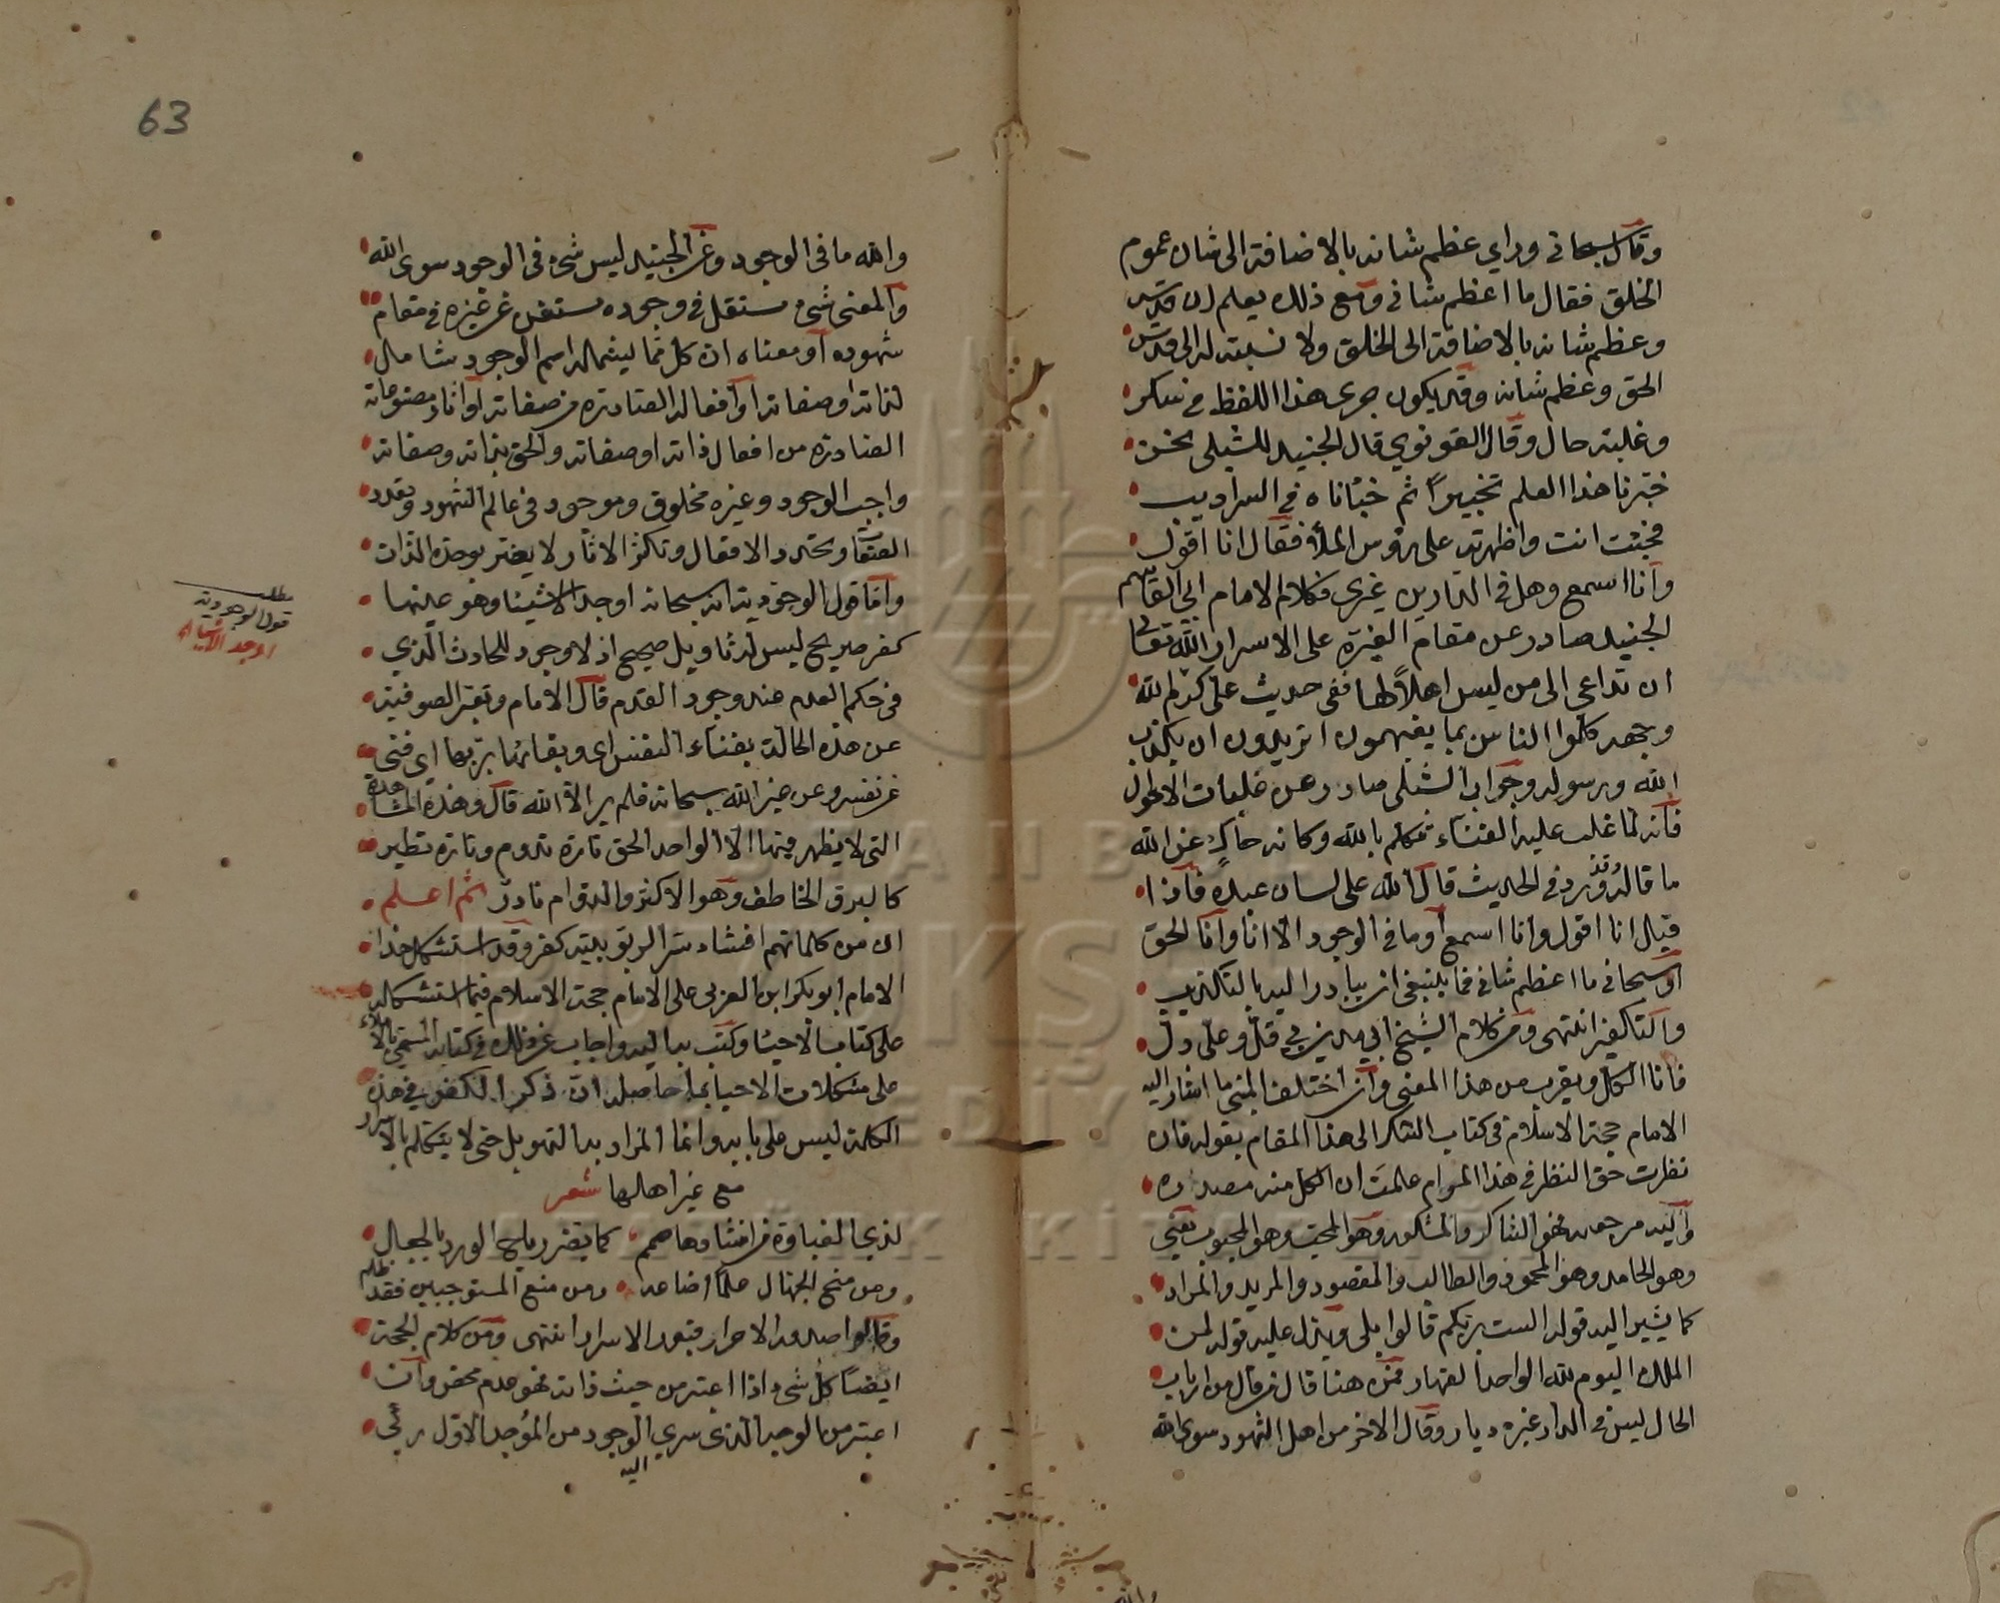 وقال سبحاني وراي عظم شانه بالاضافة الى شان عموم
الخلق فقال ما اعظم شاني ومع ذلك يعلم ان قدسه
وعظم شانه بالاضافة الى الخلق ولا نسبة له الى قدس
الحق وعظم شانه وقد يكون جرى هذا اللفظ في سكر
وغلبة حال وقال القونوي قال الجنيد للشبلي نحن
حبّرنا هذا العلم تحبيرًا ثم خبأناه في السراديب
فجئت انت واظهرته على رؤس الملأ فقال انا اقول
وانا اسمع وهل في الدارين غيري فكلام الامام ابي القاسم
الجنيد صادر عن مقام الغيرة على الاسرار الله تعالى
ان تداعى الى من ليس اهلاً لها ففي حديث علي كرم الله
وجهه كلموا الناس بما يفهمون اتريدون ان يكذب
الله ورسوله وجواب الشبلي صادر عن غلبات الاحوال
فانه لما غلب عليه الفناء تكلم بالله وكانه حاكٍ عن الله
ما قاله وقد ورد في الحديث قال الله على لسان عبده فاذا
قيل انا اقول وانا اسمع او ما في الوجود الا انا وانا الحق
او سبحاني ما اعظم شاني فما ينبغي ان يبادر اليه بالتكذيب
والتكفير انتهى ومن كلام الشيخ ابي مدين بي قل وعلي دل
فانا الكل ويقرب من هذا المعنى وان اختلف المبنى ما اشار اليه
الامام حجة الاسلام في كتاب الشكر الى هذا المقام بقوله فان
نظرت حق النظر في هذا المرام علمت ان الكل منه مصدره
واليه مرجعه فهو الشاكر والمشكور وهو المحب وهو المحبوب يعني
وهو الحامد وهو المحمود والطالب والمقصود والمريد والمراد
كما يشير اليه قوله الست بربكم قالوا بلى ويدل عليه قوله لمن
الملك اليوم لله الواحد القهار فمن هنا قال من قال من ارباب
الحال ليس في الدار غيره ديار وقال الاخر من اهل الشهود سوى الله
والله
63
والله ما في الوجود وعن الجنيد ليس شئ في الوجود سوى الله
والمعنى شئ مستقل في وجوده مستغن عن غيره في مقام
شهوده او معناه ان كل مما يشمله اسم الوجود شامل
لذاته او صفاته او افعاله الصادرة من صفاته او اثار مصنوعاته
الصادرة من افعال ذاته او صفاته والحق بذاته وصفاته
واجب الوجود وغيره مخلوق وموجود في عالم الشهود وتعدد
الصفات وتجدد الافعال وتكثر الاثار لا يضر بوحدة الذات
واما قول الوجودية انه سبحانه اوجد الاشيا وهو عينها
كفر صريح ليس له تاويل صحيح اذ لا وجود للحادث الذي
في حكم العدم عند وجود القدم قال الامام وتعبر الصوفية
عن هذه الحالة بفناء النفس اي وبقائها بربها اي فنى
عن نفسه وعن غير الله سبحانه فلم ير الا الله قال وهذه المشاهدة
التي لا يظهر فيها الا الواحد الحق تارة تدوم وتارة تطير
كالبرق الخاطف وهو الاكثر والدوام نادر ثم اعلم
ان من كلماتهم افشاء سر الربوبية كفر وقد استشكل هذا
الامام ابو بكر ابن العربي على الامام حجة الاسلام فيما استشكله
على كتاب الاحيا وكتب به اليه واجاب عن ذلك في كتابه المسمى بالاملاء
على مشكلات الاحيا بما حاصله ان ذكر الكفر في هذه
الكلمة ليس على بابه وانما المراد به التهويل حتى لا يتكلم بالاسرار
مع غير اهلها شعر
لذي الغباوة من افشاوها صمم كما يضر رياح الورد بالجعل
ومن منح الجهال علمًا اضاعه ومن منع المستوجبين فقد ظلم
وقالوا صدور الاحرار قبور الاسرار انتهى ومن كلام الحجة
ايضًا كل شئ اذا اعتبر من حيث ذاته فهو عدم محض وان
اعتبر من الوجه الذي سري الوجود من الموجد الاول رئي
اليه
مطلب
قول الوجودية
اوجد الاشياء